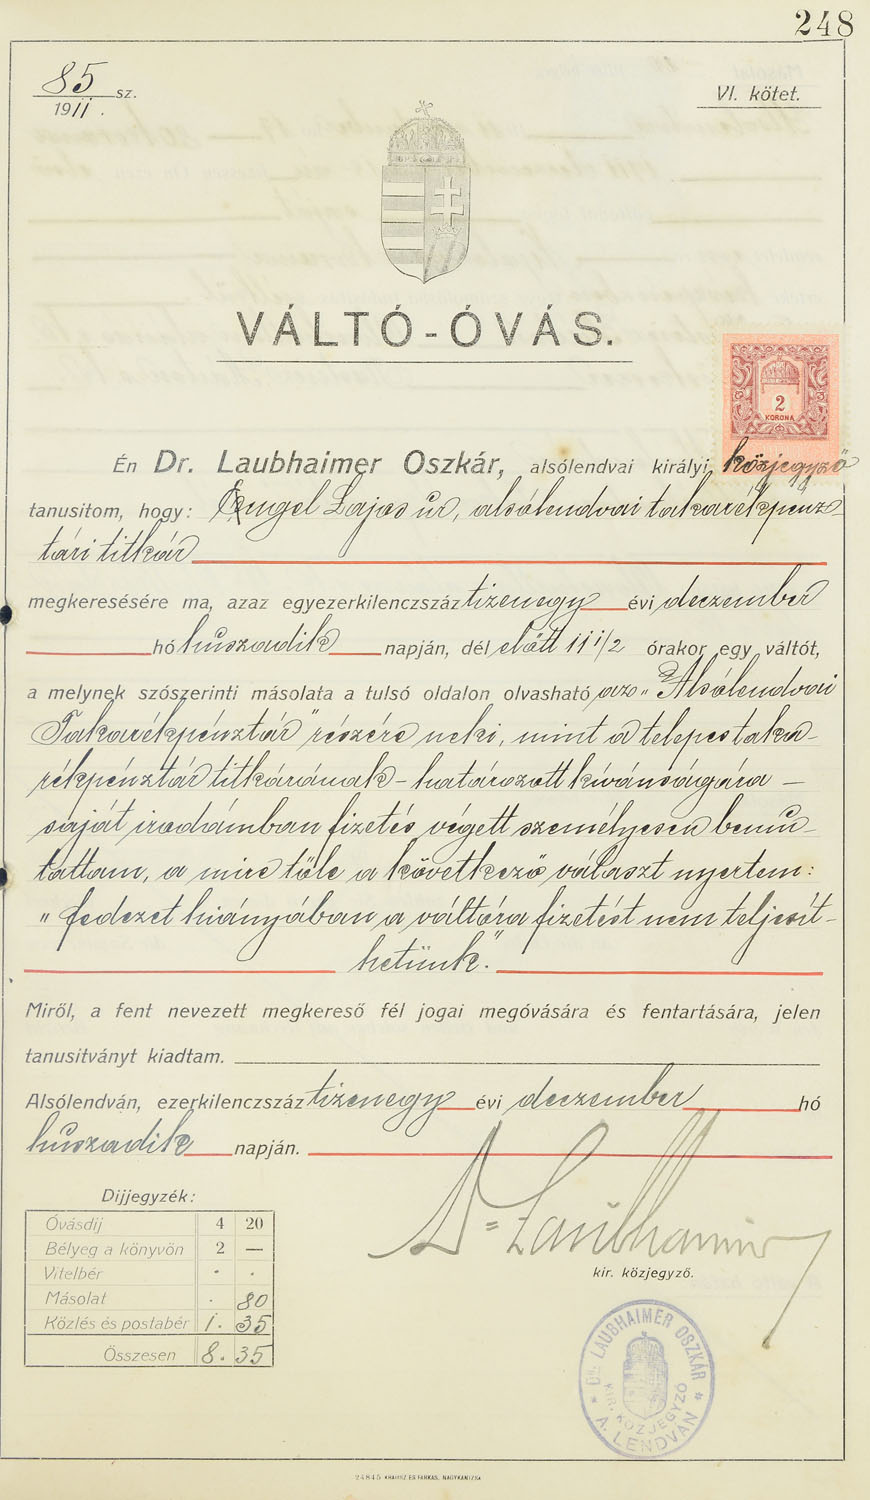 248
85 sz.
1911.
VI. kötet.
VÁLTÓ-ÓVÁS.
2
KORONA
Én Dr. Laubhaimer Oszkár, alsólendvai királyi közjegyző
tanusitom, hogy: Engel Lajos ur, alsólendvai takarékpénz-
tári titkár
megkeresésére ma, azaz egyezerkilenczszáz tizenegy évi deczember
hó huszadik napján, dél előtt 11 1/2 órakor egy váltót,
a melynek szószerinti másolata a tulsó oldalon olvasható az „Alsólendvai
Takarékpénztár” részére neki, mint a telepes taka-
rékpénztár titkárának – határozott kívánságára –
saját irodámban fizetés végett személyesen bemu-
tattam, a mire tőle a következő választ nyertem:
„fedezet hiányában a váltóra fizetést nem teljesít-
hetünk.”
Miről, a fent nevezett megkereső fél jogai megóvására és fentartására, jelen
tanusitványt kiadtam.
Alsólendván, ezerkilenczszáz tizenegy évi deczember hó
huszadik napján.
Dr. Laubhaimer
kir. közjegyző.
Dijjegyzék:
Óvásdij 4 20
Bélyeg a könyvön 2 —
Vitelbér
Másolat . 80
Közlés és postabér 1. 35
Összesen 8. 35
* DR. LAUBHAIMER OSZKÁR *
KIR. KÖZJEGYZŐ
A. LENDVÁN
24845 KRAUSZ ÉS FARKAS, NAGYKANIZSA